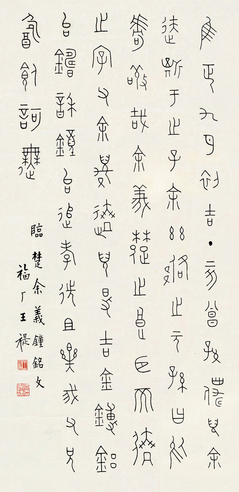 隹正九月初吉丁亥曾孫僕兒余
斯于之子余茲佫之元孫曰於
敬哉余義楚之良臣而
之字父余兒吉金鎛鋁
台鑄鐘台追孝先且樂我父兄
飲飤訶舞
臨楚余義鐘銘文
福厂王禔